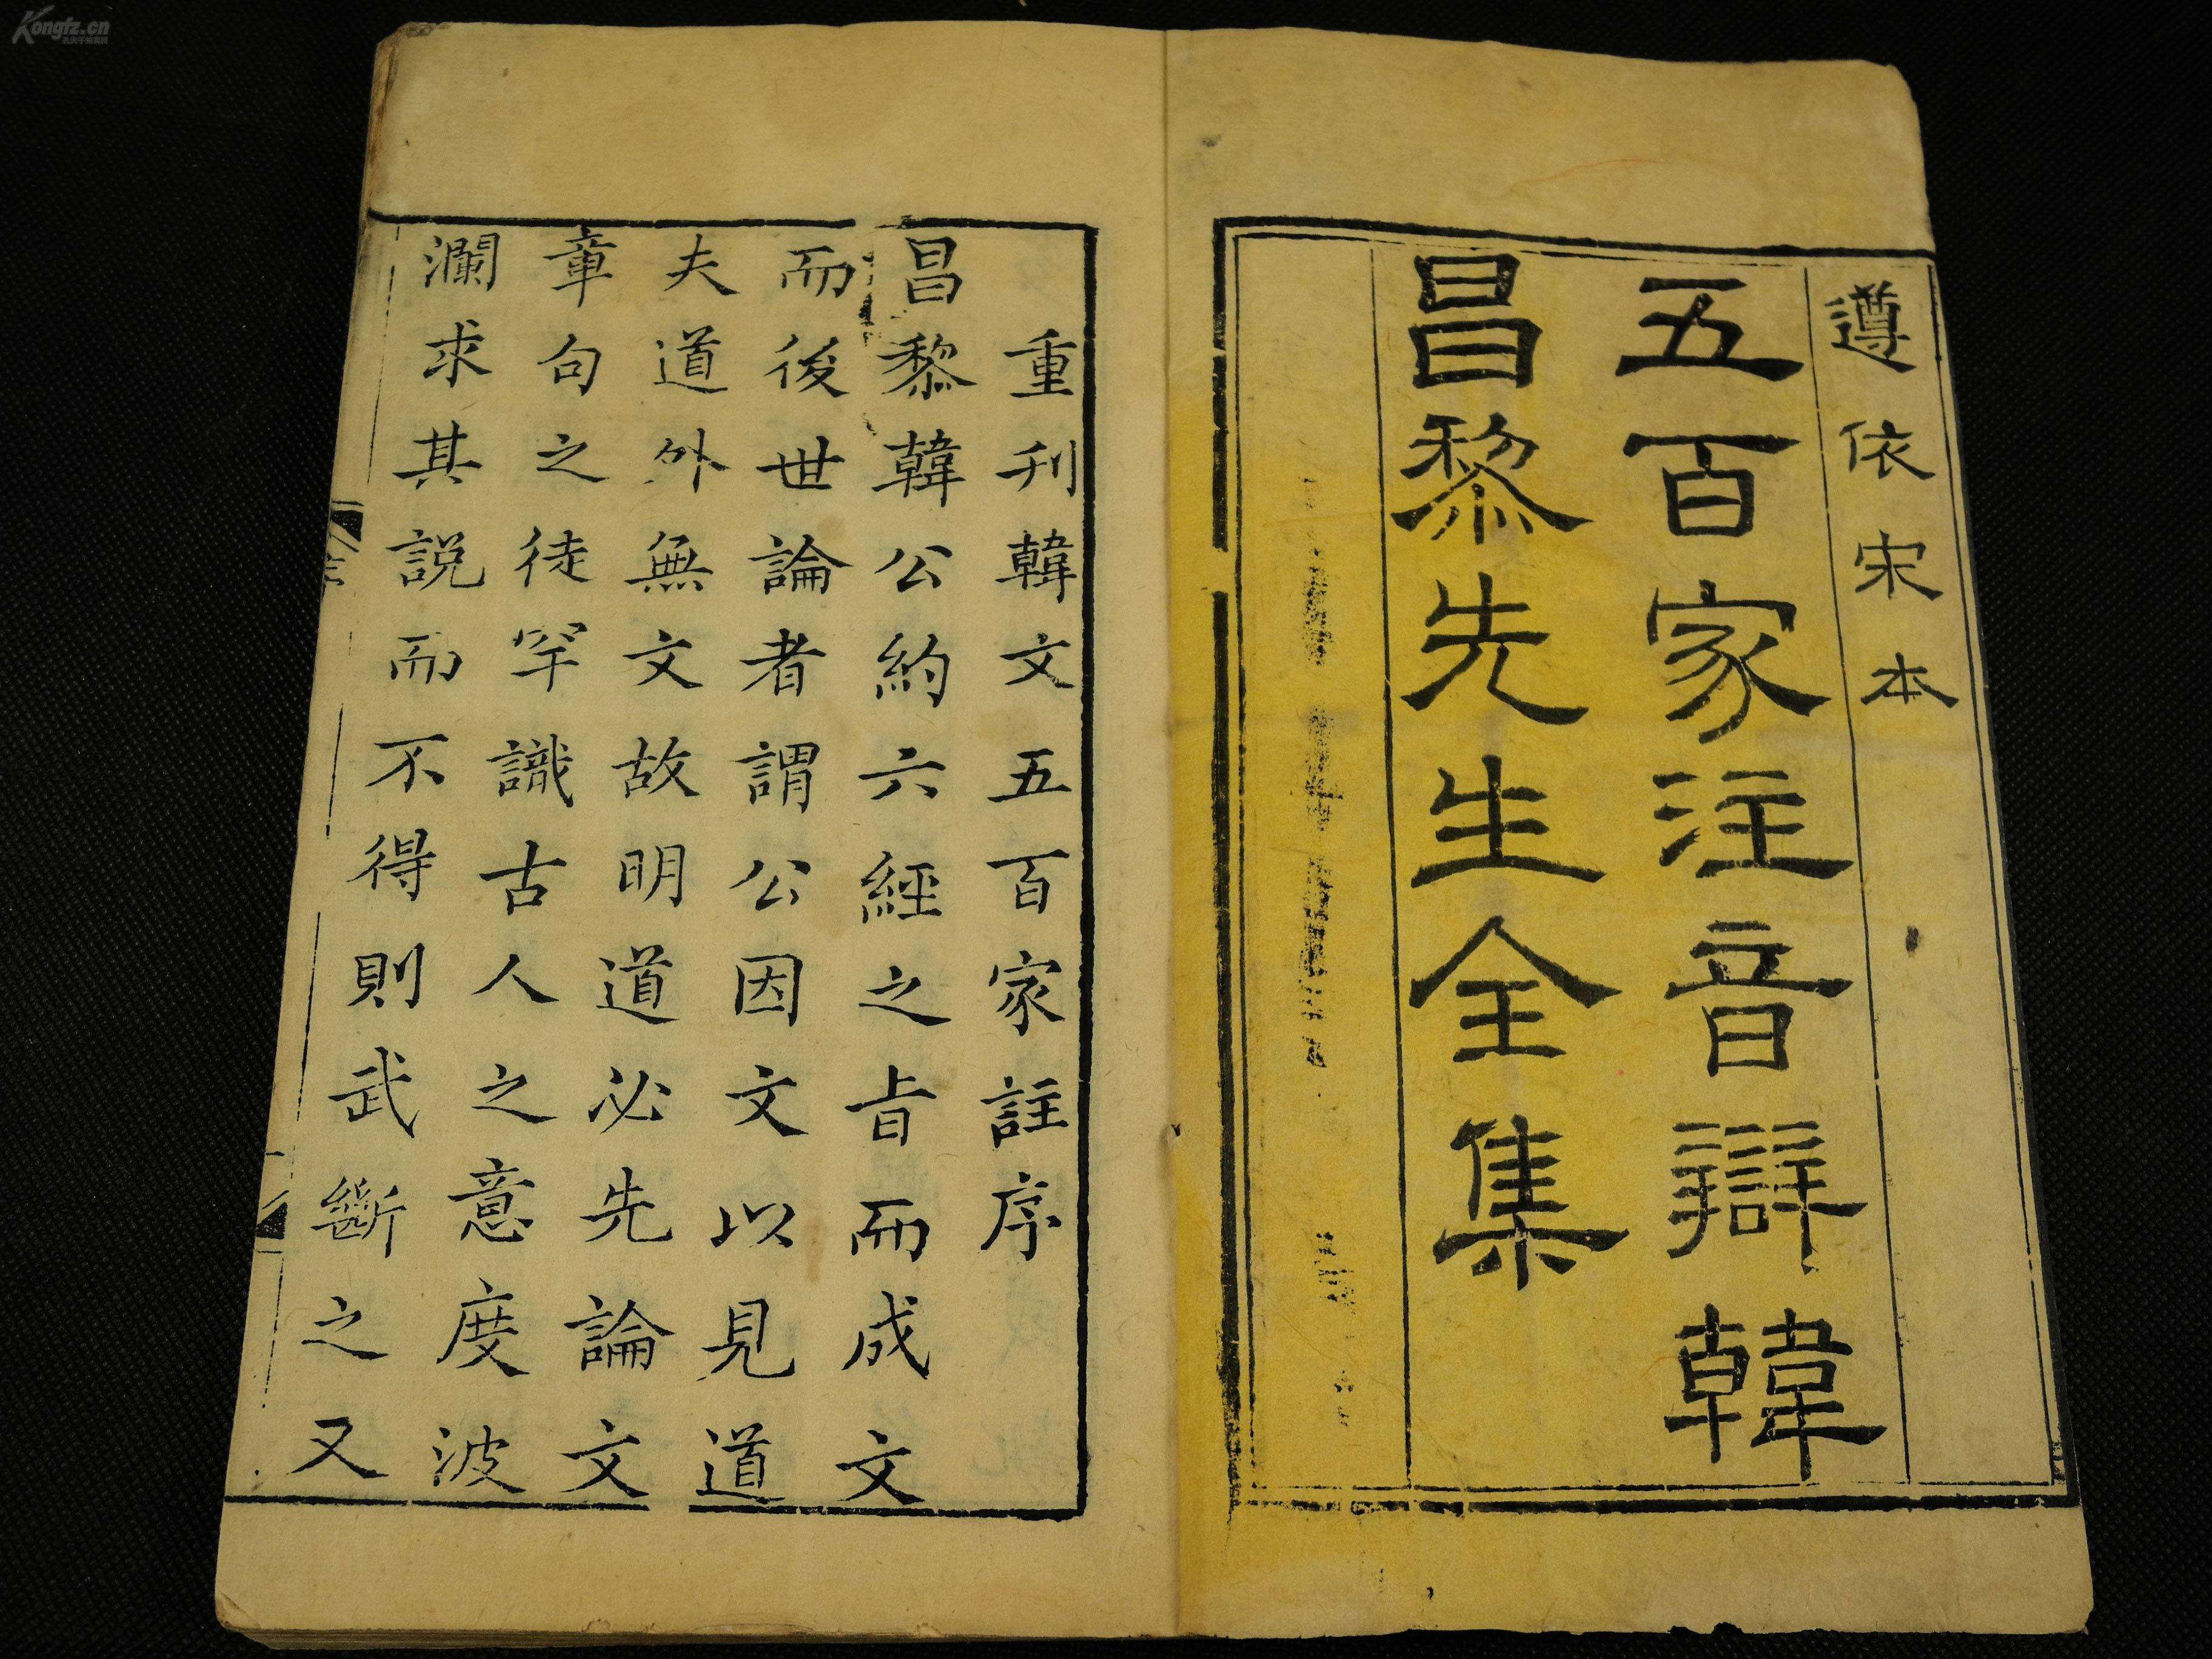 遵依宋本
五百家注音辯韓
昌黎先生全集
重刊韓文五百家註序
昌黎韓公約六經之㫖而成文
而後世論者謂公因文以見道
夫道外無文故明道必先論文
章句之徒罕識古人之意度波
瀾求其説而不得則武斷之又
Kongfz.cn